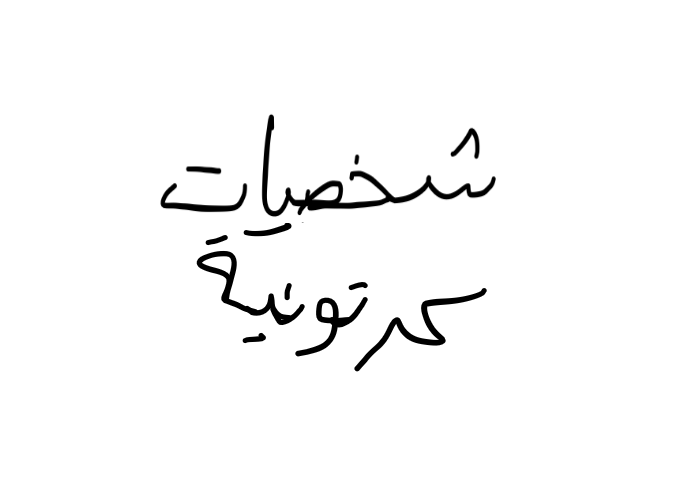 شخصيات
كرتونية